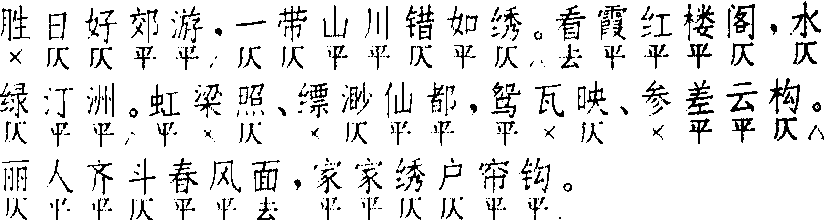 胜日好郊游,一带山川错如绣。看霞红楼阁,水
×仄仄平平,仄仄平平仄平仄。去平平平仄,仄
绿汀洲。虹梁照、缥渺仙都,鸳瓦映、参差云构。
仄平平△平×仄×仄平平平×仄×平平仄△
丽人齐斗春风面,家家绣户帘钩。
仄平平仄平平去平平仄仄平平